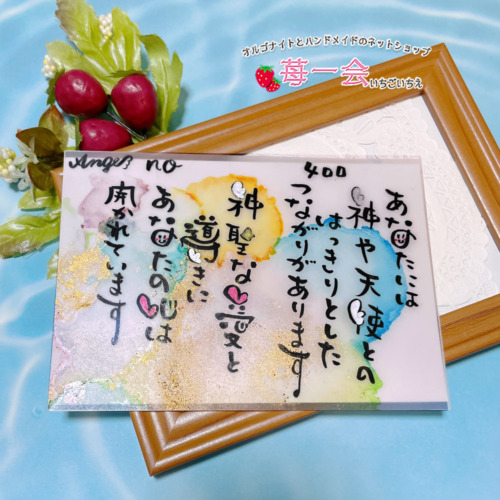 オルゴナイトとハンドメイドのネットショップ
苺一会
いちごいちえ
Angel no 400
あなたには
神や天使との
はっきりとした
つながりがあります
神聖な愛と
導きに
あなたの心は
開かれています